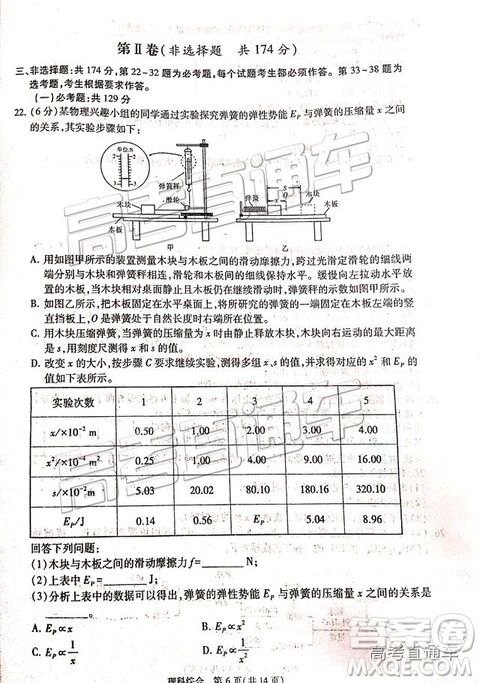 第Ⅱ卷(非选择题 共174分)
三、非选择题:共174分,第22~32题为必考题,每个试题考生都必须作答。第33~38题为
选考题,考生根据要求作答。
(一)必考题:共129分
22.(6分)某物理兴趣小组的同学通过实验探究弹簧的弹性势能 Eₚ 与弹簧的压缩量 x 之间
的关系,其实验步骤如下:
单位:N
2 2
3 3
弹簧秤
滑轮
木块
木板
甲
s
x
O
木块
弹簧
木板
乙
A. 用如图甲所示的装置测量木块与木板之间的滑动摩擦力,跨过光滑定滑轮的细线两
端分别与木块和弹簧秤相连,滑轮和木块间的细线保持水平。缓慢向左拉动水平放
置的木板,当木块相对桌面静止且木板仍在继续滑动时,弹簧秤的示数如图甲所示。
B. 如图乙所示,把木板固定在水平桌面上,将所研究的弹簧的一端固定在木板左端的竖
直挡板上,O 是弹簧处于自然长度时右端所在位置。
C. 用木块压缩弹簧,当弹簧的压缩量为 x 时由静止释放木块,木块向右运动的最大距离
是 s,用刻度尺测得 x 和 s 的值。
D. 改变 x 的大小,按步骤 C 要求继续实验,测得多组 x、s 的值,并求出对应的 x² 和 Eₚ 的
值如下表所示。
实验次数 1 2 3 4 5
x/×10⁻² m 0.50 1.00 2.00 3.00 4.00
x²/×10⁻⁴ m 0.25 1.00 4.00 9.00 16.00
s/×10⁻² m 5.03 20.02 80.10 180.16 320.10
Eₚ/J 0.14 0.56 5.04 8.96
回答下列问题:
(1)木块与木板之间的滑动摩擦力 f=______ N;
(2)上表中 Eₚ=______ J;
(3)分析上表中的数据可以得出,弹簧的弹性势能 Eₚ 与弹簧的压缩量 x 之间的关系是
______。
A. Eₚ∝x
理科综合 第6页(共14页)
高考直通车
高考直通车
高考直通车
答案圈